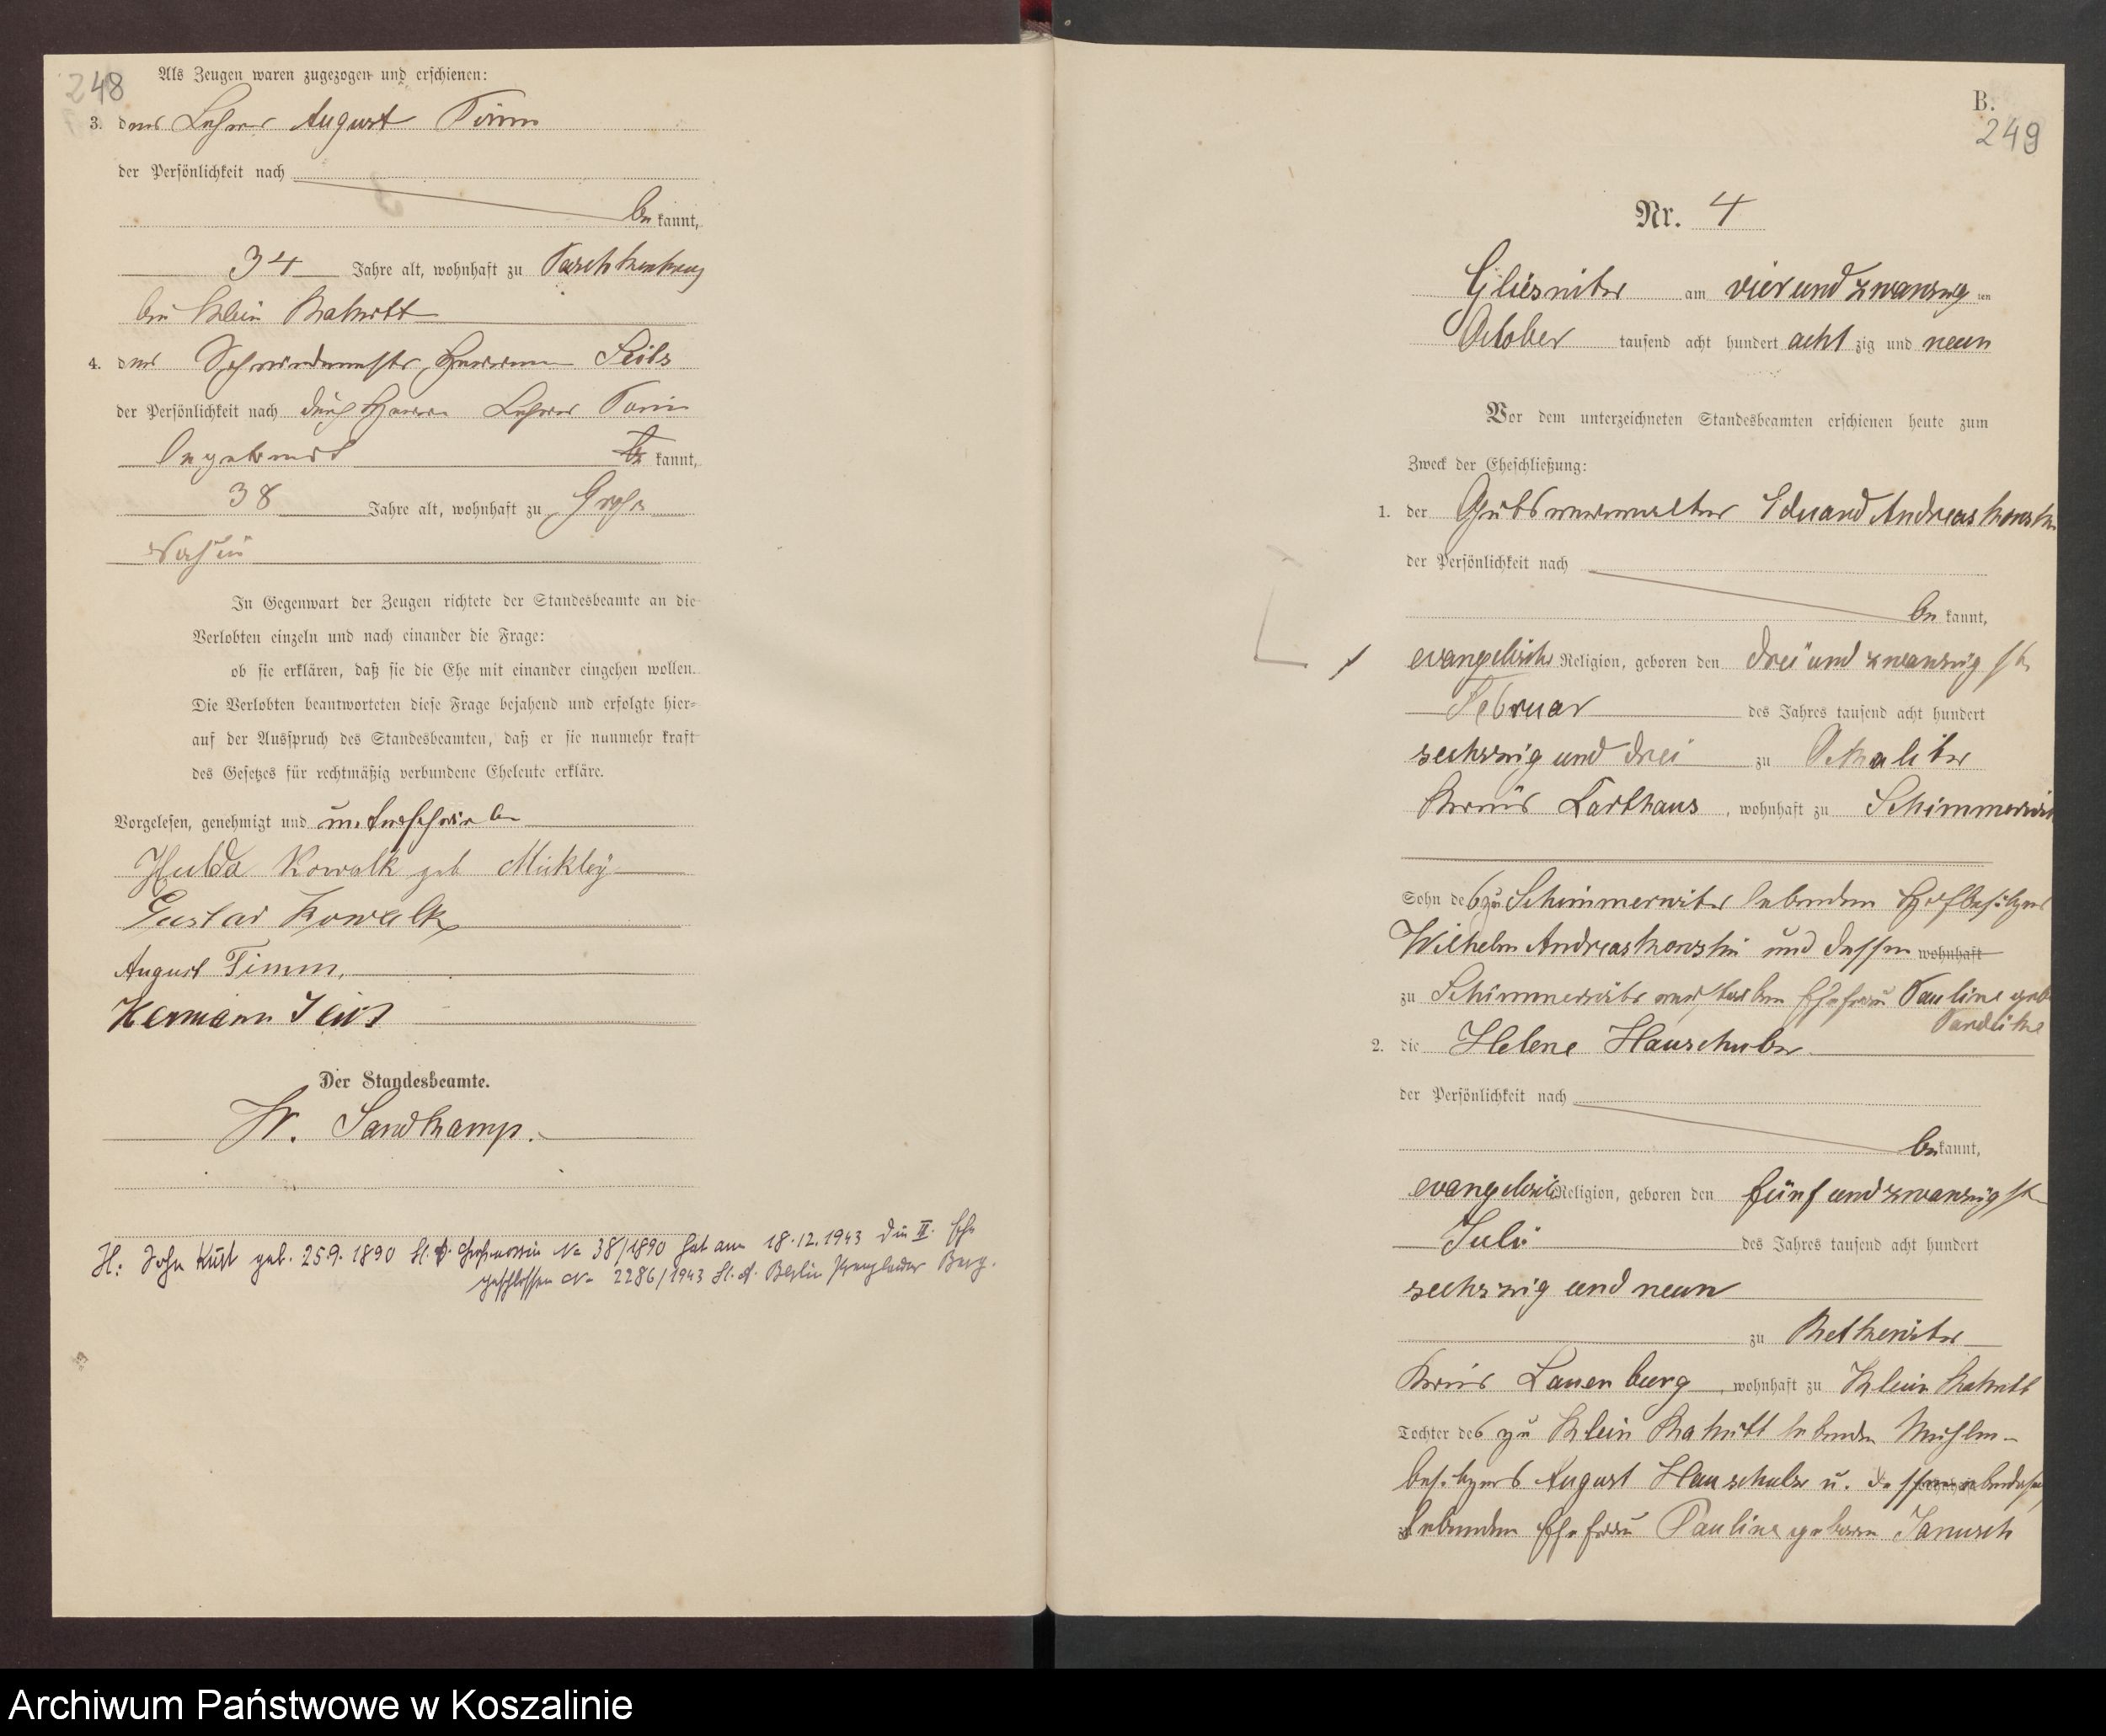 248
Als Zeugen waren zugezogen und erschienen:
3. der Lehrer August Timm
der Persönlichkeit nach
be kannt,
34 Jahre alt, wohnhaft zu
bei Klein Rakitt
4. der Hermann
der Persönlichkeit nach durch Herrn Lehrer Timm
kannt,
38 Jahre alt, wohnhaft zu Groß
In Gegenwart der Zeugen richtete der Standesbeamte an die
Verlobten einzeln und nach einander die Frage:
ob sie erklären, daß sie die Ehe mit einander eingehen wollen.
Die Verlobten beantworteten diese Frage bejahend und erfolgte hier-
auf der Ausspruch des Standesbeamten, daß er sie nunmehr kraft
des Gesetzes für rechtmäßig verbundene Eheleute erkläre.
Vorgelesen, genehmigt und unterschrieben
Hulda Kowalk geb Mickley
Gustav Kowalk
August Timm.
Hermann
Der Standesbeamte.
W. Sandkamp.
H: Sohn Kurt geb. 25.9.1890 St.A. No 38/1890 hat am 18.12.1943 die II. Ehe
geschlossen No 2286/1943 St.A. Berlin Prenzlauer Berg.
B.
249
Nr. 4
Gliesnitz am vier und zwanzig ten
October tausend acht hundert acht zig und neun
Vor dem unterzeichneten Standesbeamten erschienen heute zum
Zweck der Eheschließung:
1. der Gutsverwalter Eduard Andreas
der Persönlichkeit nach
be kannt,
evangelischer Religion, geboren den drei und zwanzigsten
Februar des Jahres tausend acht hundert
sechszig und drei zu
Kreis Carthaus, wohnhaft zu Schimmerwitz
Sohn des zu Schimmerwitz lebenden Hofbesitzers
Wilhelm und dessen wohnhaft
zu Schimmerwitz verstorbenen Ehefrau Pauline geb
2. die Helene Hauschulz
der Persönlichkeit nach
be kannt,
evangelischer Religion, geboren den fünf und zwanzigsten
Juli des Jahres tausend acht hundert
sechszig und neun
zu Rettkewitz
Kreis Lauenburg, wohnhaft zu Klein Rakitt
Tochter des zu Klein Rakitt lebenden Mühlen-
besitzers August Hauschulz u. dessen
lebenden Ehefrau Pauline geboren Janusch
Archiwum Państwowe w Koszalinie